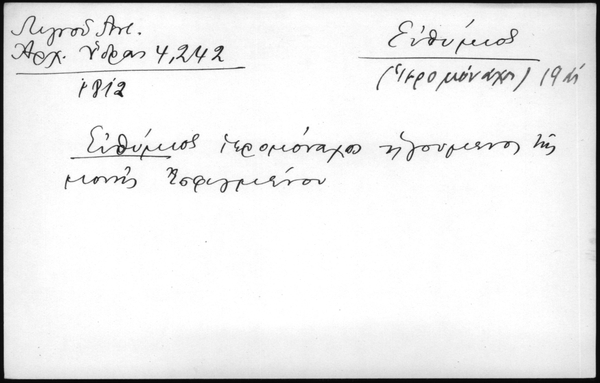 Λιγνοῦ Ἀντ.
Ἀρχ. Ὕδρας 4,242
1812
Εὐθύμιος
(Ἱερομόναχος) 19 αἰ
Εὐθύμιος ἱερομόναχος ἡγούμενος τῆς
μονῆς Ἐσφιγμένου